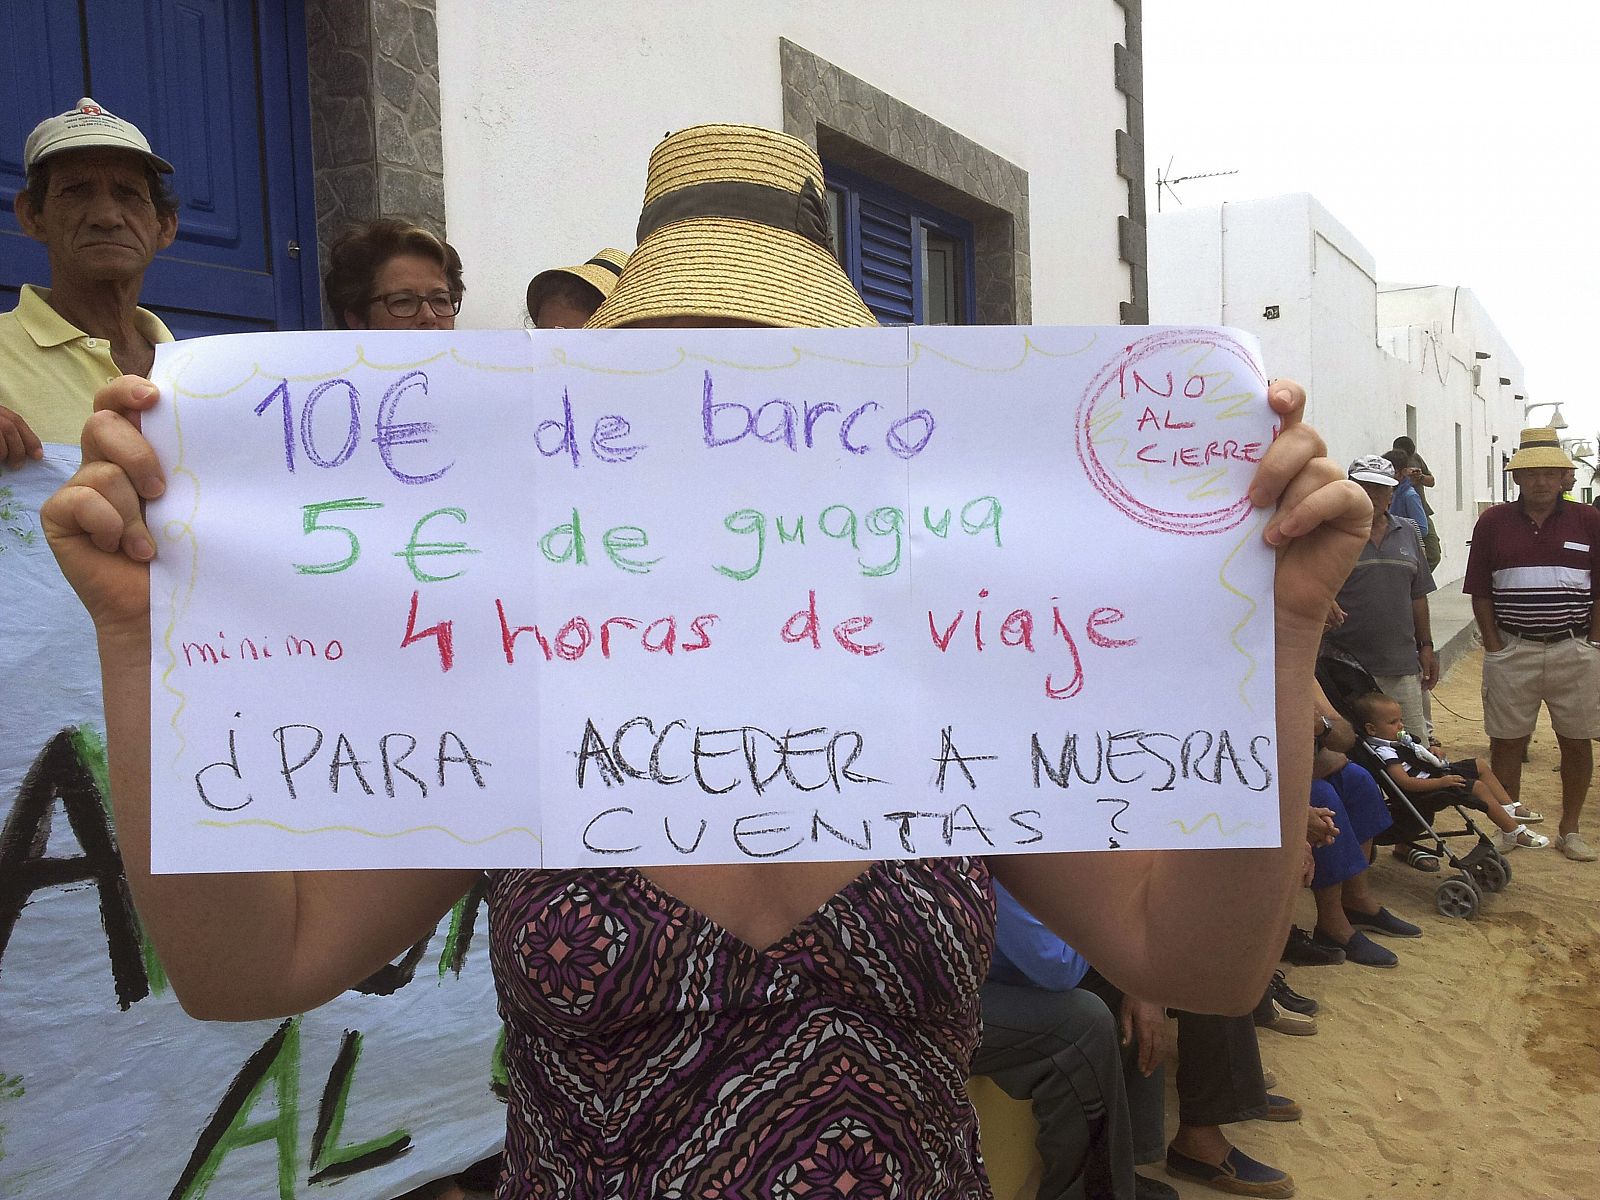 10€ de barco
5€ de guagua
minimo 4 horas de viaje
¿PARA ACCEDER A NUESRAS
CUENTAS?
¡NO
AL
CIERRE!
AL